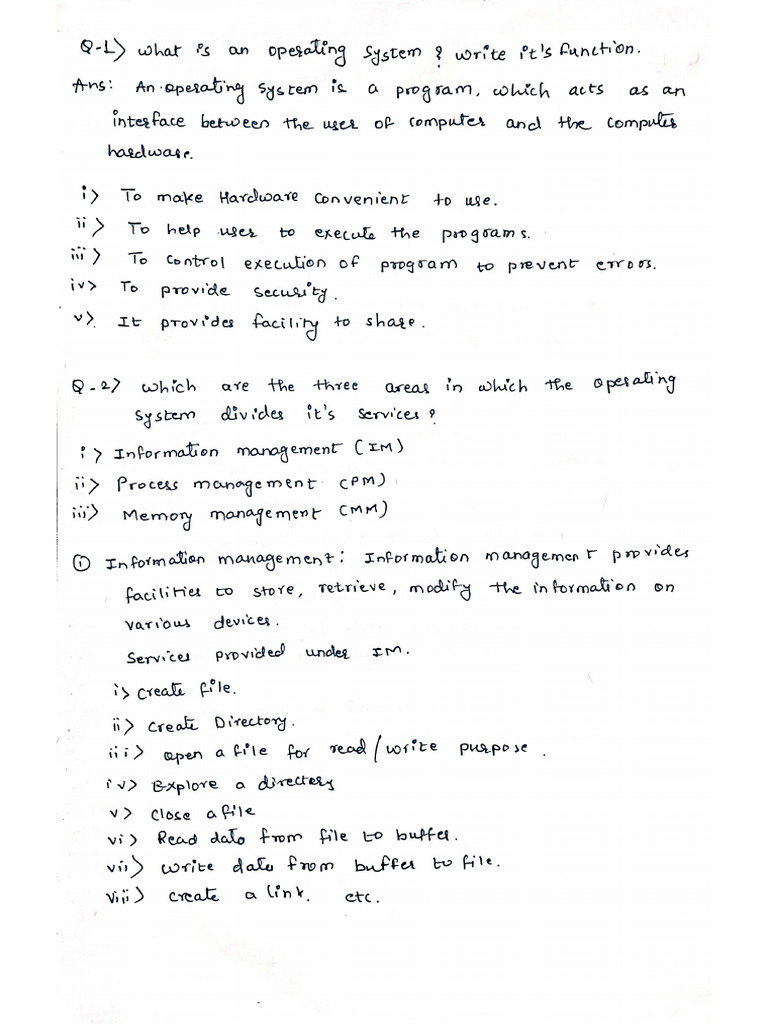 Q-1) what is an operating system ? write it's function.
Ans: An operating system is a program, which acts as an
interface between the user of computer and the computer
hardware.
i> To make Hardware convenient to use.
ii> To help user to execute the programs.
iii> To control execution of program to prevent errors.
iv> To provide security.
v>. It provides facility to share.
Q-2) which are the three areas in which the operating
system divides it's services?
i> Information management (IM)
ii> Process management (PM)
iii> Memory management (MM)
① Information management: Information management provides
facilities to store, retrieve, modify the information on
various devices.
Services provided under IM.
i> create file.
ii> create Directory.
iii> open a file for read/write purpose.
iv> Explore a directory
v> close a file
vi> Read data from file to buffer.
vii> write data from buffer to file.
viii> create a link. etc.